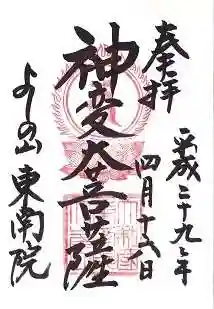 奉拝
平成二十九年
四月十六日
神変大菩薩
よしの山 東南院